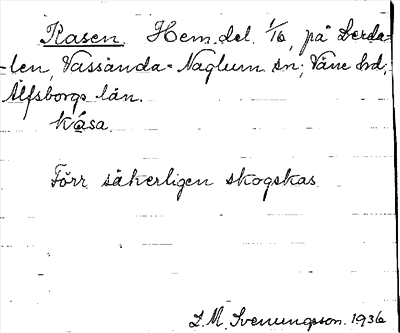 Kasen. Hem. del. 1/16, på Lerda-
-len, Vassända-Naglum sn; Väne hd,
Älfsborgs län.
kåsa
Förr säkerligen skogskas
L. M. Svenungsson. 1936